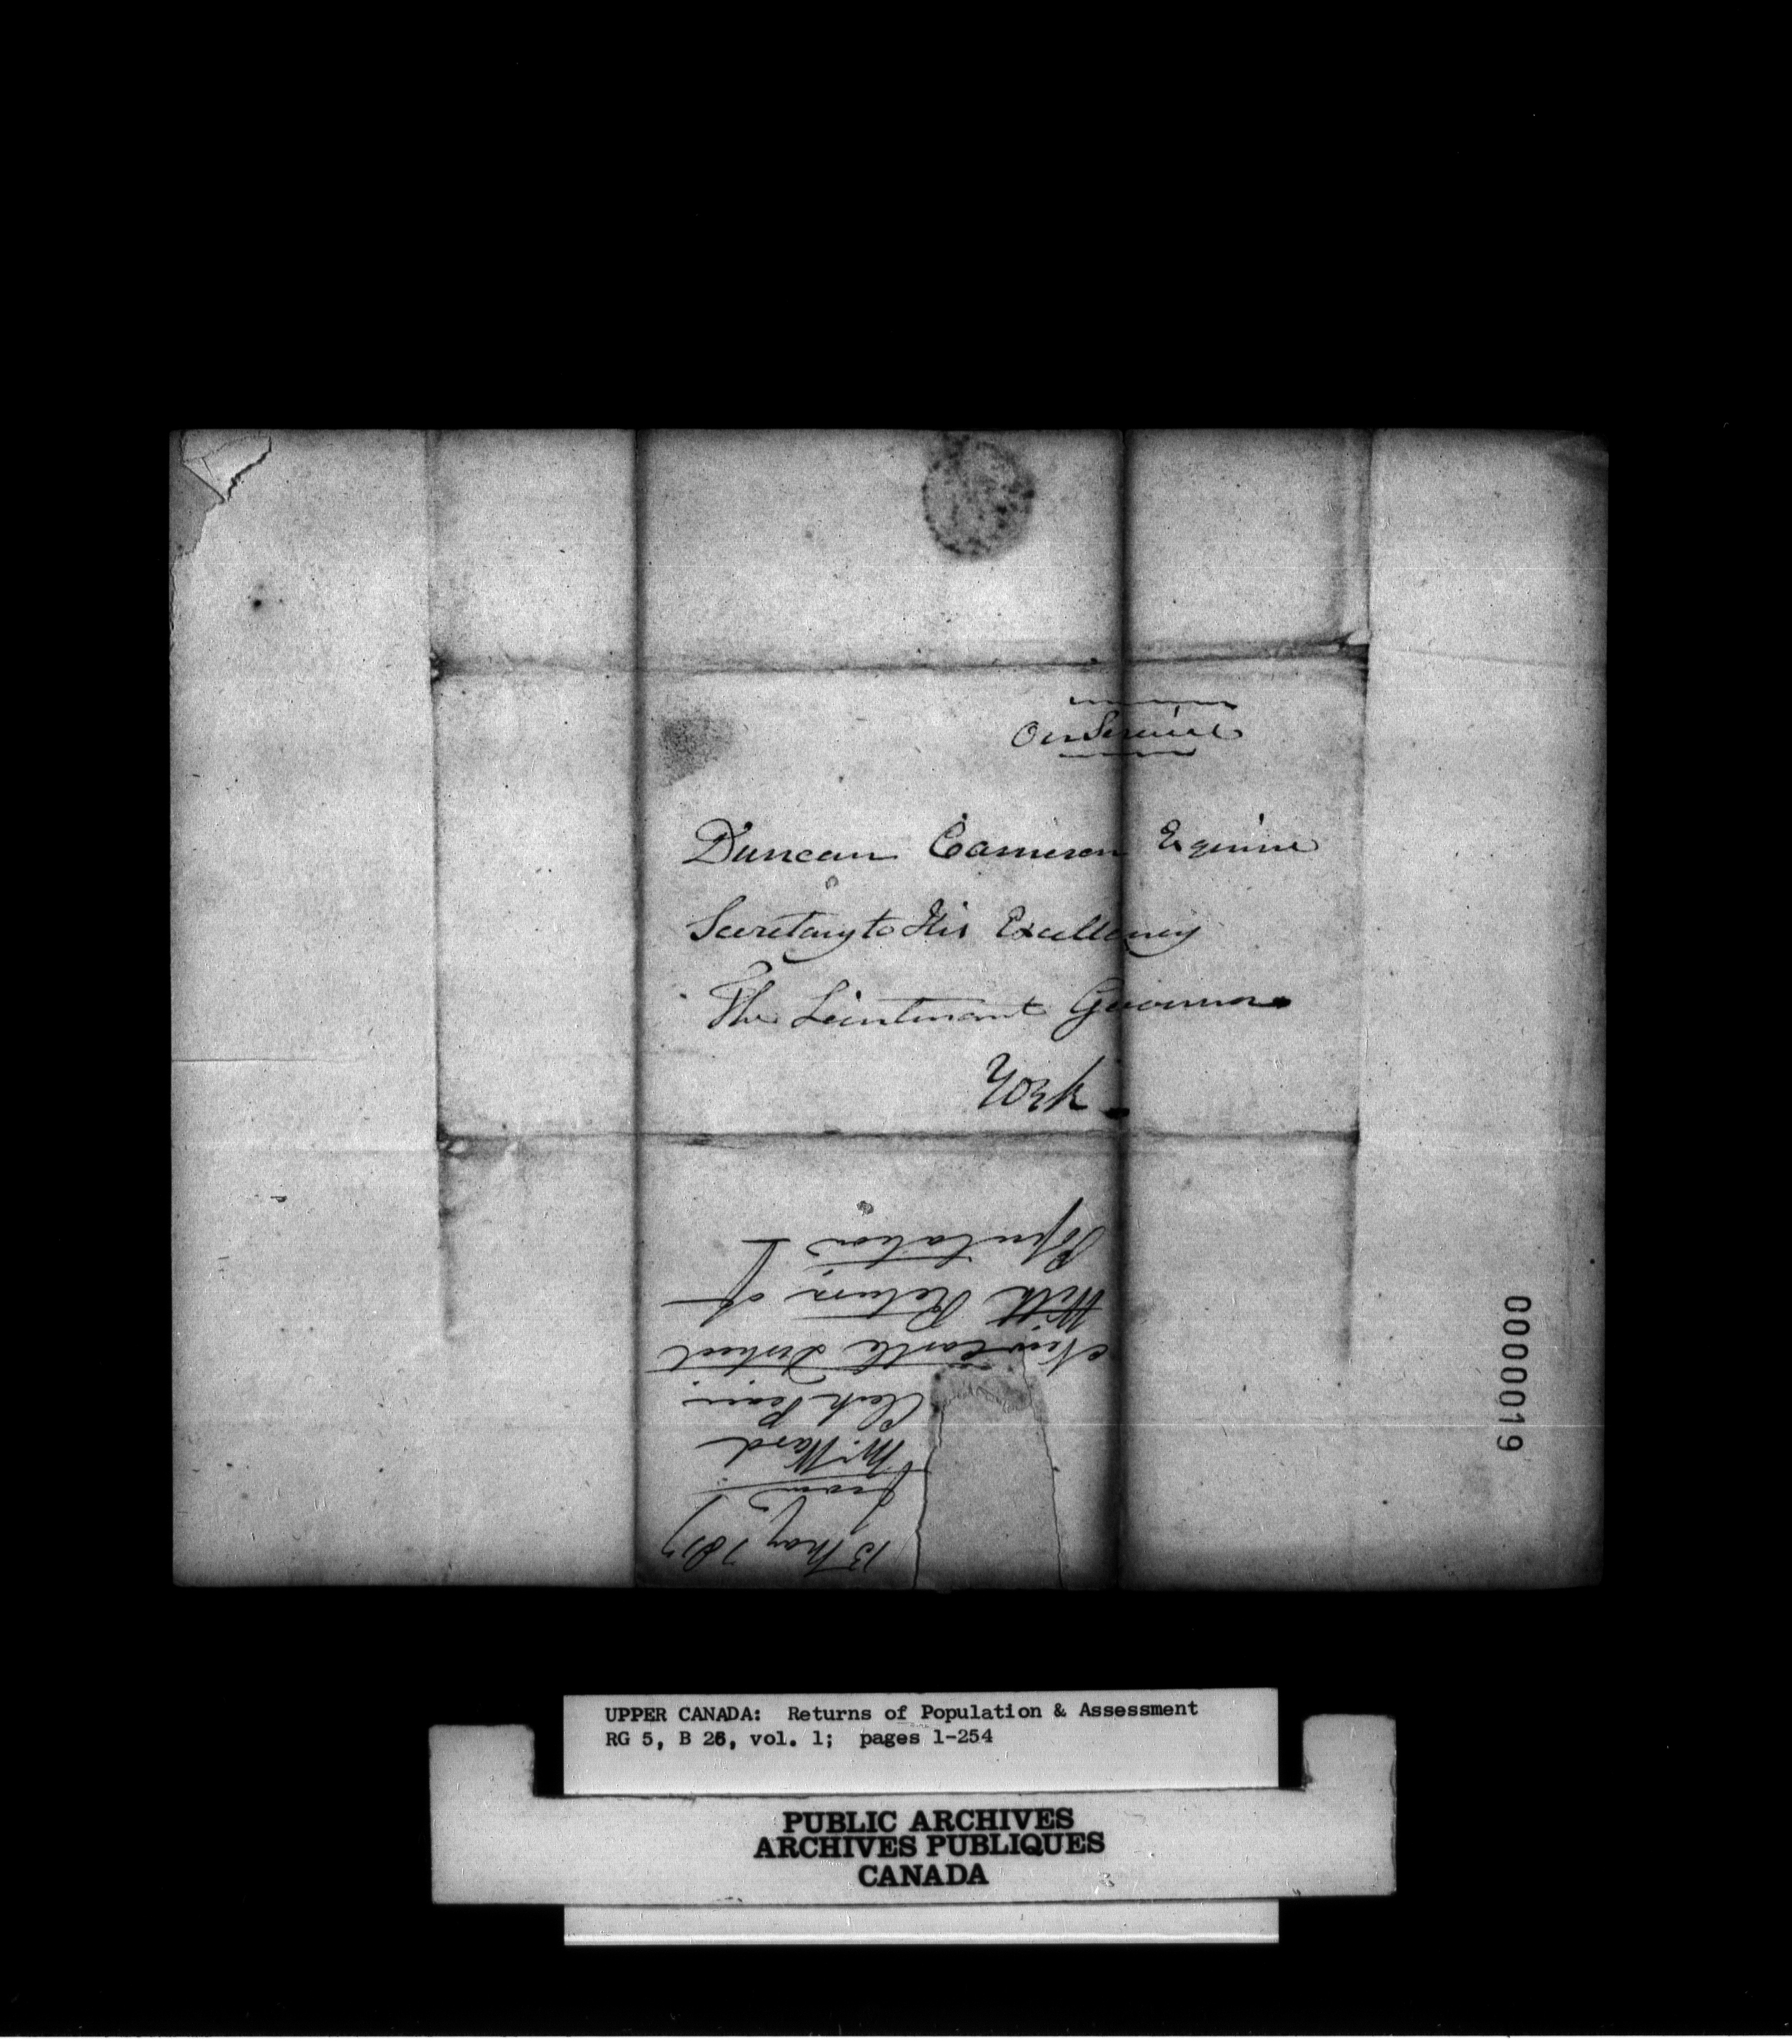 On Service
Duncan Cameron Esquire
Secretary to His Excellency
The Lieutenant Governor
York
13 May 1817
from
Mr. Ward
Clerk Peace
New Castle District
With Return of
Population
0000019
UPPER CANADA: Returns of Population & Assessment
RG 5, B 26, vol. 1; pages 1-254
PUBLIC ARCHIVES
ARCHIVES PUBLIQUES
CANADA